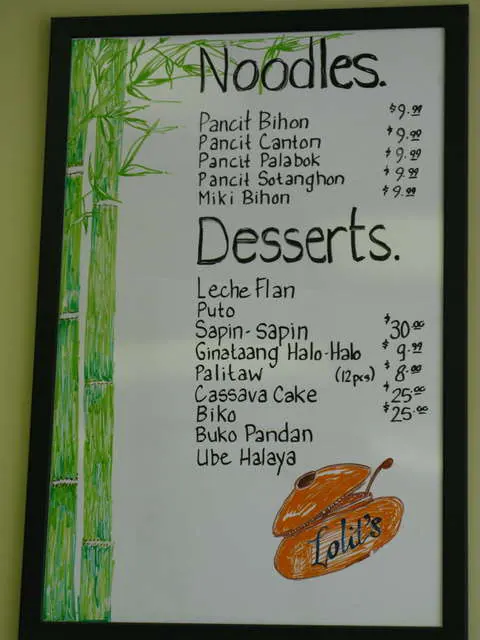 Noodles.
Pancit Bihon $9.99
Pancit Canton $9.99
Pancit Palabok $9.99
Pancit Sotanghon $9.99
Miki Bihon $9.99
Desserts.
Leche Flan
Puto
Sapin-sapin $30.00
Ginataang Halo-Halo $9.99
Palitaw (12pcs) $8.00
Cassava Cake $25.00
Biko $25.00
Buko Pandan
Ube Halaya
Lolit's